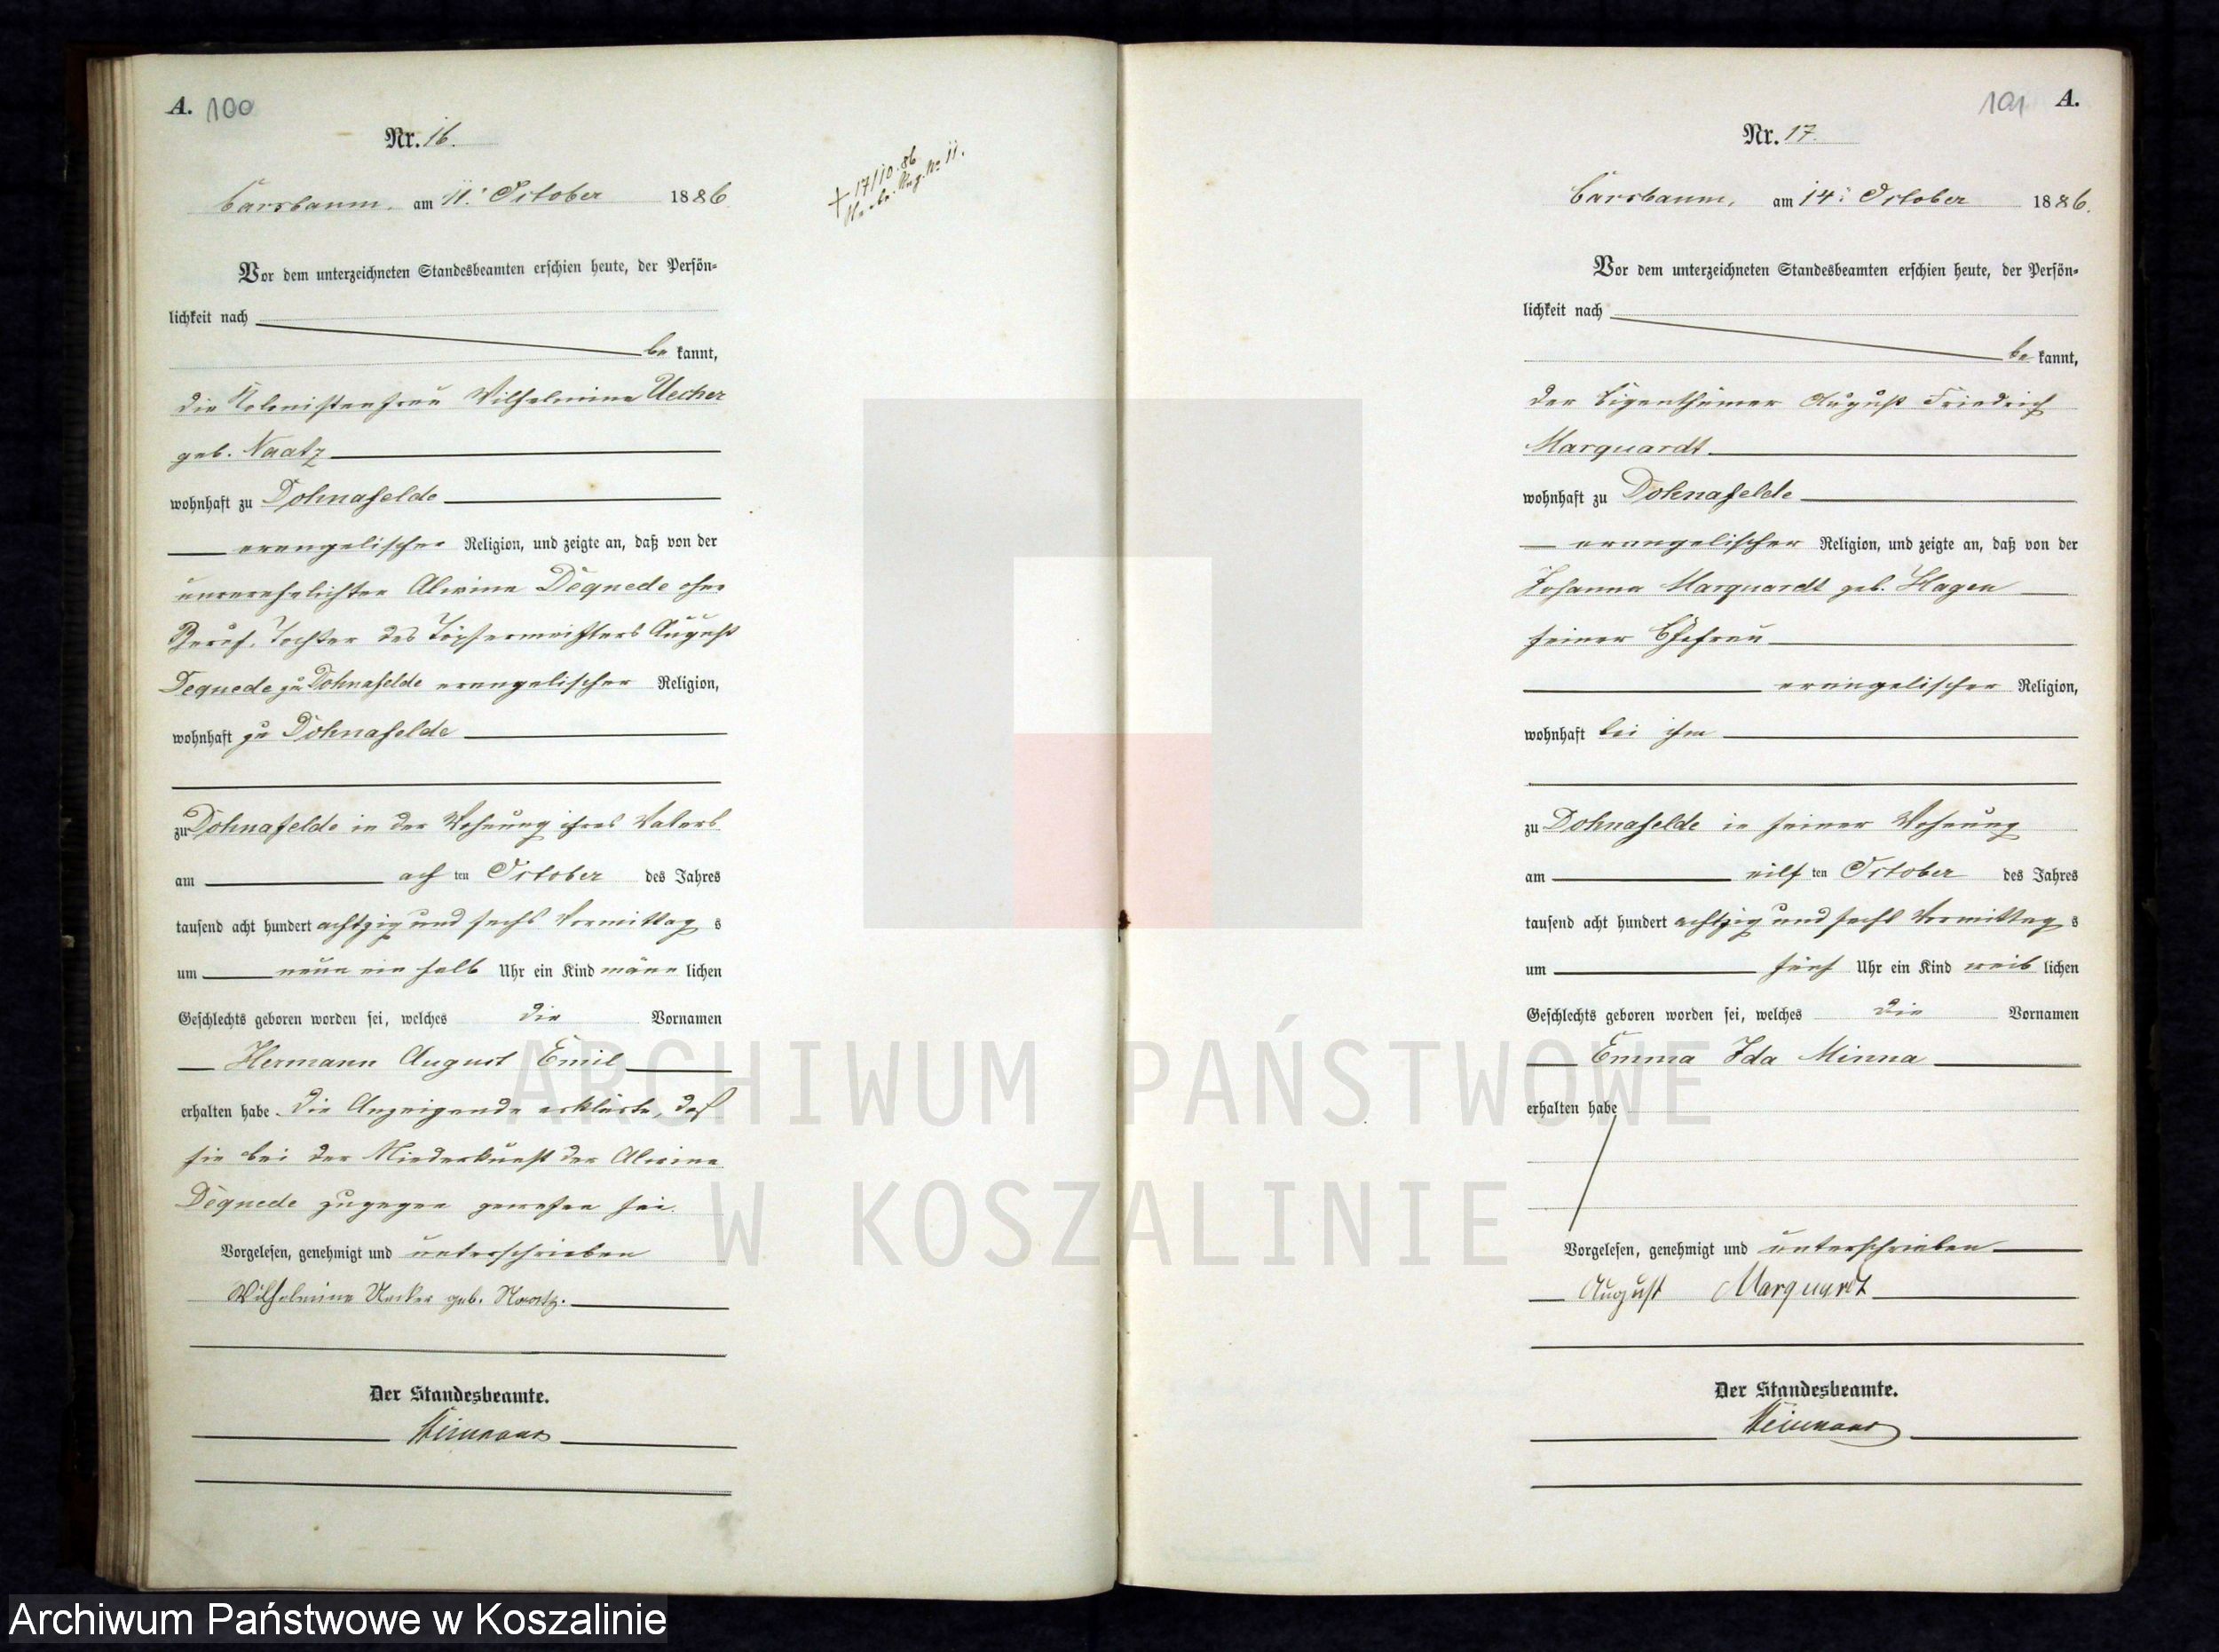 A. 100
Nr. 16.
Carsbaum, am 11. October 1886
+ 17/10.86
Sterbe Reg. No 11.
Vor dem unterzeichneten Standesbeamten erschien heute, der Persön-
lichkeit nach
bekannt,
die Kolonistenfrau Wilhelmine Uecker
geb. Naatz
wohnhaft zu Dohnafelde
evangelischer Religion, und zeigte an, daß von der
unverehelichten Alwine Dequede ohne
Beruf, Tochter des Töpfermeisters August
Dequede zu Dohnafelde evangelischer Religion,
wohnhaft zu Dohnafelde
zu Dohnafelde in der Wohnung ihres Vaters
am achten October des Jahres
tausend acht hundert achtzig und sechs Vormittags
um neun ein halb Uhr ein Kind männlichen
Geschlechts geboren worden sei, welches die Vornamen
Hermann August Emil
erhalten habe. Die Anzeigende erklärte, daß
sie bei der Niederkunft der Alwine
Dequede zugegen gewesen sei.
Vorgelesen, genehmigt und unterschrieben
Wilhelmine Uecker geb. Naatz.
Der Standesbeamte.
101 A.
Nr. 17.
Carsbaum, am 14. October 1886.
Vor dem unterzeichneten Standesbeamten erschien heute, der Persön-
lichkeit nach
bekannt,
der Eigenthümer August Friedrich
Marquardt
wohnhaft zu Dohnafelde
evangelischer Religion, und zeigte an, daß von der
Johanna Marquardt geb. Hagen
seiner Ehefrau
evangelischer Religion,
wohnhaft bei ihm
zu Dohnafelde in seiner Wohnung
am eilften October des Jahres
tausend acht hundert achtzig und sechs Vormittags
um fünf Uhr ein Kind weiblichen
Geschlechts geboren worden sei, welches die Vornamen
Emma Ida Minna
erhalten habe
Vorgelesen, genehmigt und unterschrieben
August Marquardt
Der Standesbeamte.
ARCHIWUM PAŃSTWOWE
W KOSZALINIE
Archiwum Państwowe w Koszalinie